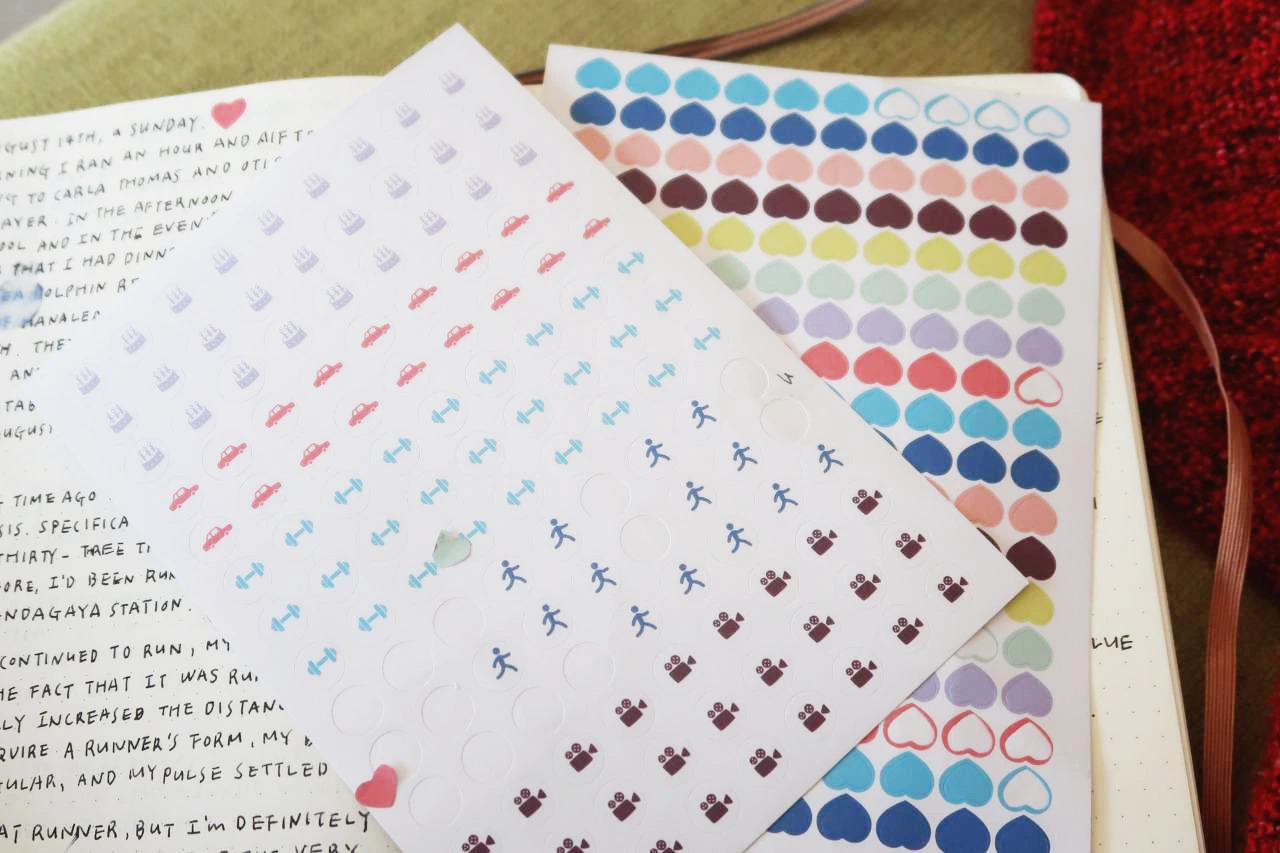 GUST 14TH, A SUNDAY.
NING I RAN AN HOUR AND A
TO CARLA THOMAS AND OTIS
AYER. IN THE AFTERNOON
OOL AND IN THE EVEN
THAT I HAD DINN
DOLPHIN
MANALE
H. THE
AN
TAB
UGUST
TIME AGO
SIS. SPECIFICA
THIRTY-TREE
ORE, I'D BEEN RUN
NDAGAYA STATION.
CONTINUED TO RUN, MY
HE FACT THAT IT WAS RU
LLY INCREASED THE DISTAN
QUIRE A RUNNER'S FORM, MY
GULAR, AND MY PULSE SETTLED
AT RUNNER, BUT I'M DEFINITELY
THE VERY
LUE